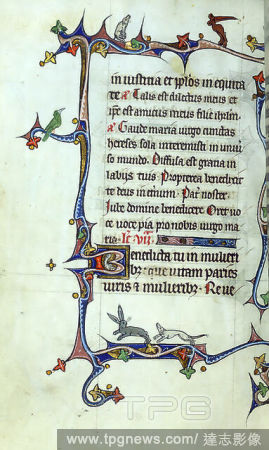 in iustitia et pplos in equita
te a Talis est dilectus meus et
ipe est amicus meus filie ihrlm
a Gaude maria uirgo cunctas
hereses sola interemisti in uniu
so mundo Diffusa est gratia in
labijs tuis Propterea benedixit
te deus in eternum Pat noster
Iube domine benedicere Oret uo
ce uoce pia pro nobis uirgo ma
ria
Benedicta tu in mulieri
bz que uitam paries
uiris & mulieribz Reue
TPG
www.tpgnews.com/ 達志影像